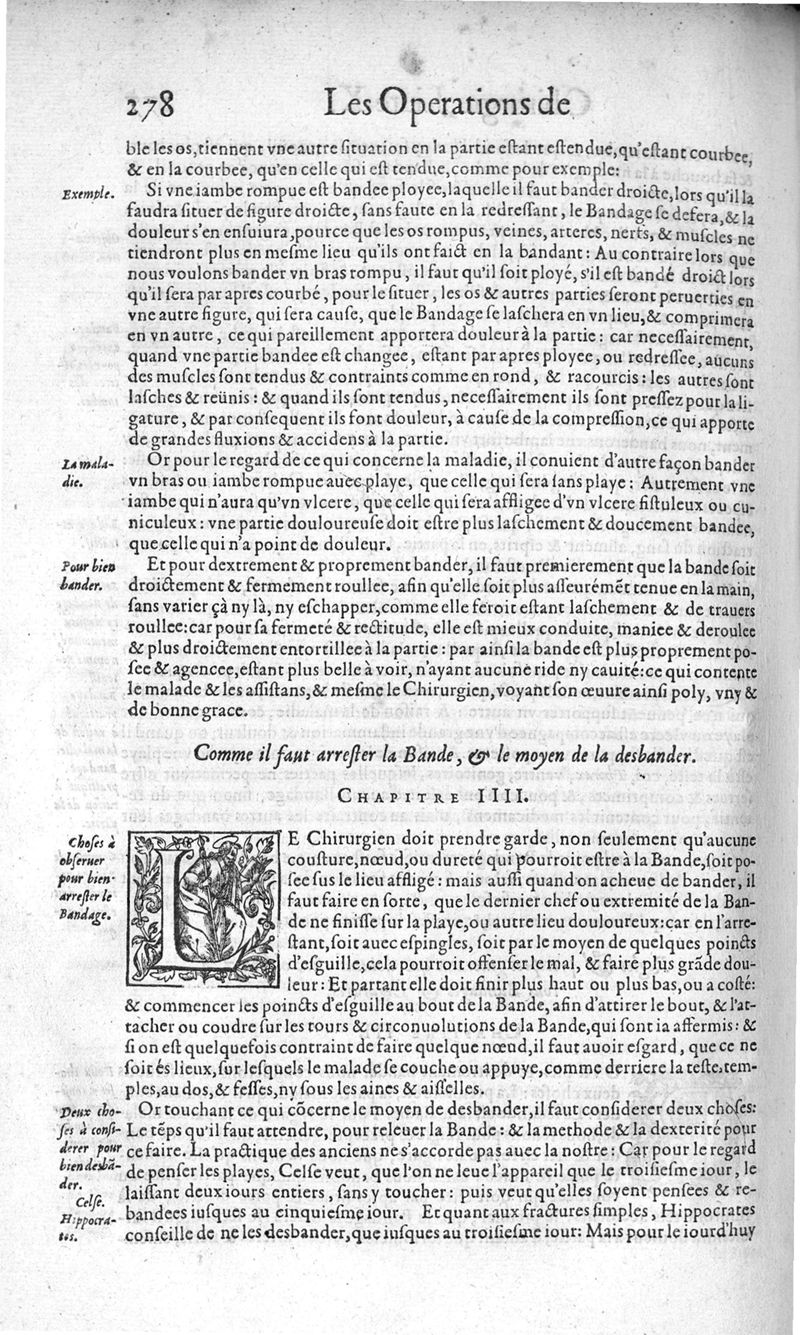 278 Les Operations de
ble les os, tiennent vne autre ſituation en la partie eſtant eſtendue, qu'eſtant courbee,
& en la courbee, qu'en celle qui eſt tendue, comme pour exemple:
Exemple.
Si vne iambe rompue eſt bandee ployee, laquelle il faut bander droicte, lors qu'il la
faudra ſituer de figure droicte, ſans faute en la redreſſant, le Bandage ſe defera, & la
douleur s'en enſuiura, pource que les os rompus, veines, arteres, nerfs, & muſcles ne
tiendront plus en meſme lieu qu'ils ont faict en la bandant: Au contraire lors que
nous voulons bander vn bras rompu, il faut qu'il ſoit ployé, s'il eſt bandé droict lors
qu'il ſera par apres courbé, pour le ſituer, les os & autres parties ſeront peruerties en
vne autre figure, qui ſera cauſe, que le Bandage ſe laſchera en vn lieu, & comprimera
en vn autre, ce qui pareillement apportera douleur à la partie: car neceſſairement,
quand vne partie bandee eſt changee, eſtant par apres ployee, ou redreſſee, aucuns
des muſcles ſont tendus & contraints comme en rond, & racourcis: les autres ſont
laſches & reünis: & quand ils ſont tendus, neceſſairement ils ſont preſſez pour la li-
gature, & par conſequent ils font douleur, à cauſe de la compreſſion, ce qui apporte
de grandes fluxions & accidens à la partie.
La mala-
die.
Or pour le regard de ce qui concerne la maladie, il conuient d'autre façon bander
vn bras ou iambe rompue auec playe, que celle qui ſera ſans playe: Autrement vne
iambe qui n'aura qu'vn vlcere, que celle qui ſera affligee d'vn vlcere fiſtuleux ou cu-
niculeux: vne partie douloureuſe doit eſtre plus laſchement & doucement bandee,
que celle qui n'a point de douleur.
Pour bien
bander.
Et pour dextrement & proprement bander, il faut premierement que la bande ſoit
droictement & fermement roullee, afin qu'elle ſoit plus aſſeurémẽt tenue en la main,
ſans varier çà ny là, ny eſchapper, comme elle feroit eſtant laſchement & de trauers
roullee: car pour ſa fermeté & rectitude, elle eſt mieux conduite, maniee & deroulee
& plus droictement entortillee à la partie: par ainſi la bande eſt plus proprement po-
ſee & agencee, eſtant plus belle à voir, n'ayant aucune ride ny cauité: ce qui contente
le malade & les aſſiſtans, & meſme le Chirurgien, voyant ſon œuure ainſi poly, vny &
de bonne grace.
Comme il faut arreſter la Bande, & le moyen de la desbander.
CHAPITRE IIII.
Choſes à
obſeruer
pour bien
arreſter le
Bandage.
LE Chirurgien doit prendre garde, non ſeulement qu'aucune
couſture, nœud, ou dureté qui pourroit eſtre à la Bande, ſoit po-
ſee ſus le lieu affligé: mais auſſi quand on acheue de bander, il
faut faire en ſorte, que le dernier chef ou extremité de la Ban-
de ne finiſſe ſur la playe, ou autre lieu douloureux: car en l'arre-
ſtant, ſoit auec eſpingles, ſoit par le moyen de quelques poincts
d'eſguille, cela pourroit offenſer le mal, & faire plus grãde dou-
leur: Et partant elle doit finir plus haut ou plus bas, ou a coſté:
& commencer les poincts d'eſguille au bout de la Bande, afin d'attirer le bout, & l'at-
tacher ou coudre ſur les tours & circonuolutions de la Bande, qui ſont ia affermis: &
ſi on eſt quelquefois contraint de faire quelque nœud, il faut auoir eſgard, que ce ne
ſoit és lieux, ſur leſquels le malade ſe couche ou appuye, comme derriere la teſte, tem-
ples, au dos, & feſſes, ny ſous les aines & aiſſelles.
Deux cho-
ſes à conſi-
derer pour
bien desbã-
der.
Celſe.
Hippocra-
tes.
Or touchant ce qui cõcerne le moyen de desbander, il faut conſiderer deux choſes:
Le tẽps qu'il faut attendre, pour releuer la Bande: & la methode & la dexterité pour
ce faire. La practique des anciens ne s'accorde pas auec la noſtre: Car pour le regard
de penſer les playes, Celſe veut, que l'on ne leue l'appareil que le troiſieſme iour, le
laiſſant deux iours entiers, ſans y toucher: puis veut qu'elles ſoyent penſees & re-
bandees iuſques au cinquieſme iour. Et quant aux fractures ſimples, Hippocrates
conſeille de ne les desbander, que iuſques au troiſieſme iour: Mais pour le iourd'huy